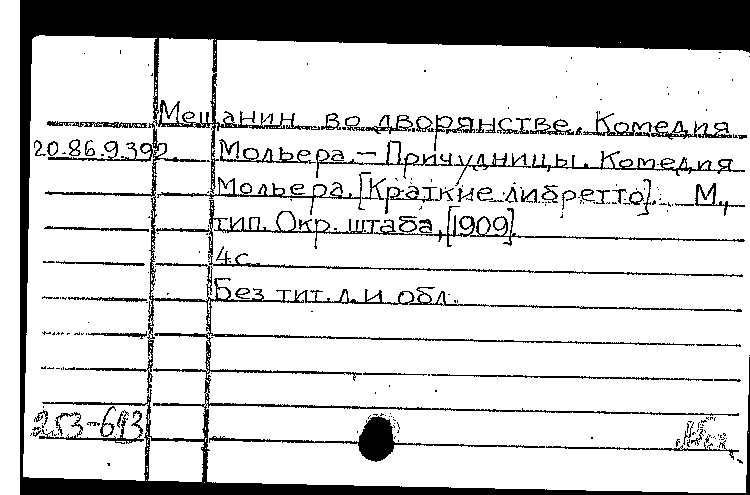 Мещанин во дворянстве. Комедия
20.86.9.392. Мольера.— Причудницы. Комедия
Мольера. [Краткие либретто]. М.,
тип. Окр. штаба, [1909].
4с.
Без тит. л. и обл.
253-693